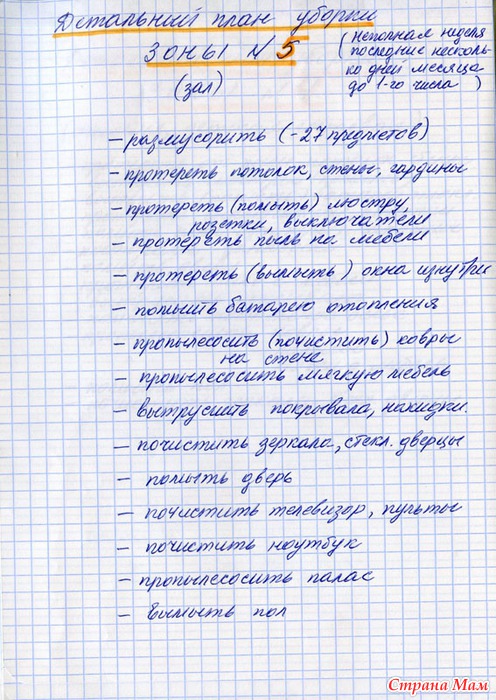 Детальный план уборки
Зоны №5
(зал)
(Неполная неделя
последние несколь-
ко дней месяца
до 1-го числа)
– размусорить (-27 предметов)
– протереть потолок, стены, гардины
– протереть (помыть) люстру,
розетки, выключатели
– протереть пыль на мебели
– протереть (вымыть) окна изнутри
– помыть батарею отопления
– пропылесосить (почистить) ковры
на стене
– пропылесосить мягкую мебель
– вытрусить покрывала, накидки.
– почистить зеркала, стекл. дверцы
– помыть дверь
– почистить телевизор, пульты
– почистить ноутбук
– пропылесосить палас
– вымыть пол
Страна Мам